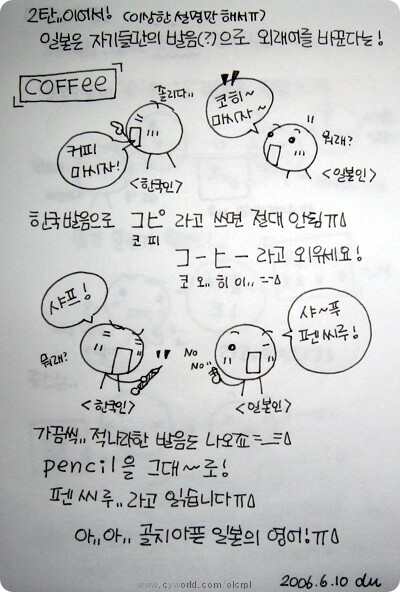 2탄,, 이어서! (이상한 설명만 해서ㅠ)
일본은 자기들만의 발음(?)으로 외래어를 바꾼다는!
COFFee
졸리다,,
코히~
마시자~
커피
마시자!
뭐래?
<한국인>
<일본인>
한국발음으로 コピ 라고 쓰면 절대 안됨ㅠ
코 피
コーヒー 라고 외우세요!
코 오,, 히 이,,
샤프!
샤~푸
펜씨루!
뭐래?
NO
NO,,
<한국인>
<일본인>
가끔씩,, 적나라한 발음도 나오죠
pencil을 그대~로!
펜씨루,, 라고 읽습니다ㅠ
아,, 아,, 골치아픈 일본의 영어!ㅠ
www.cyworld.com/olcrpl
2006.6.10